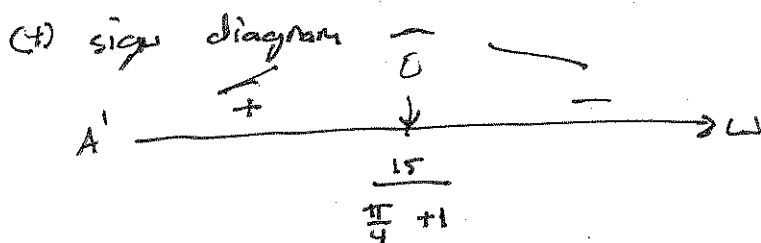 (+) sign diagram
+ 0 −
A' ω
15
π/4 + 1